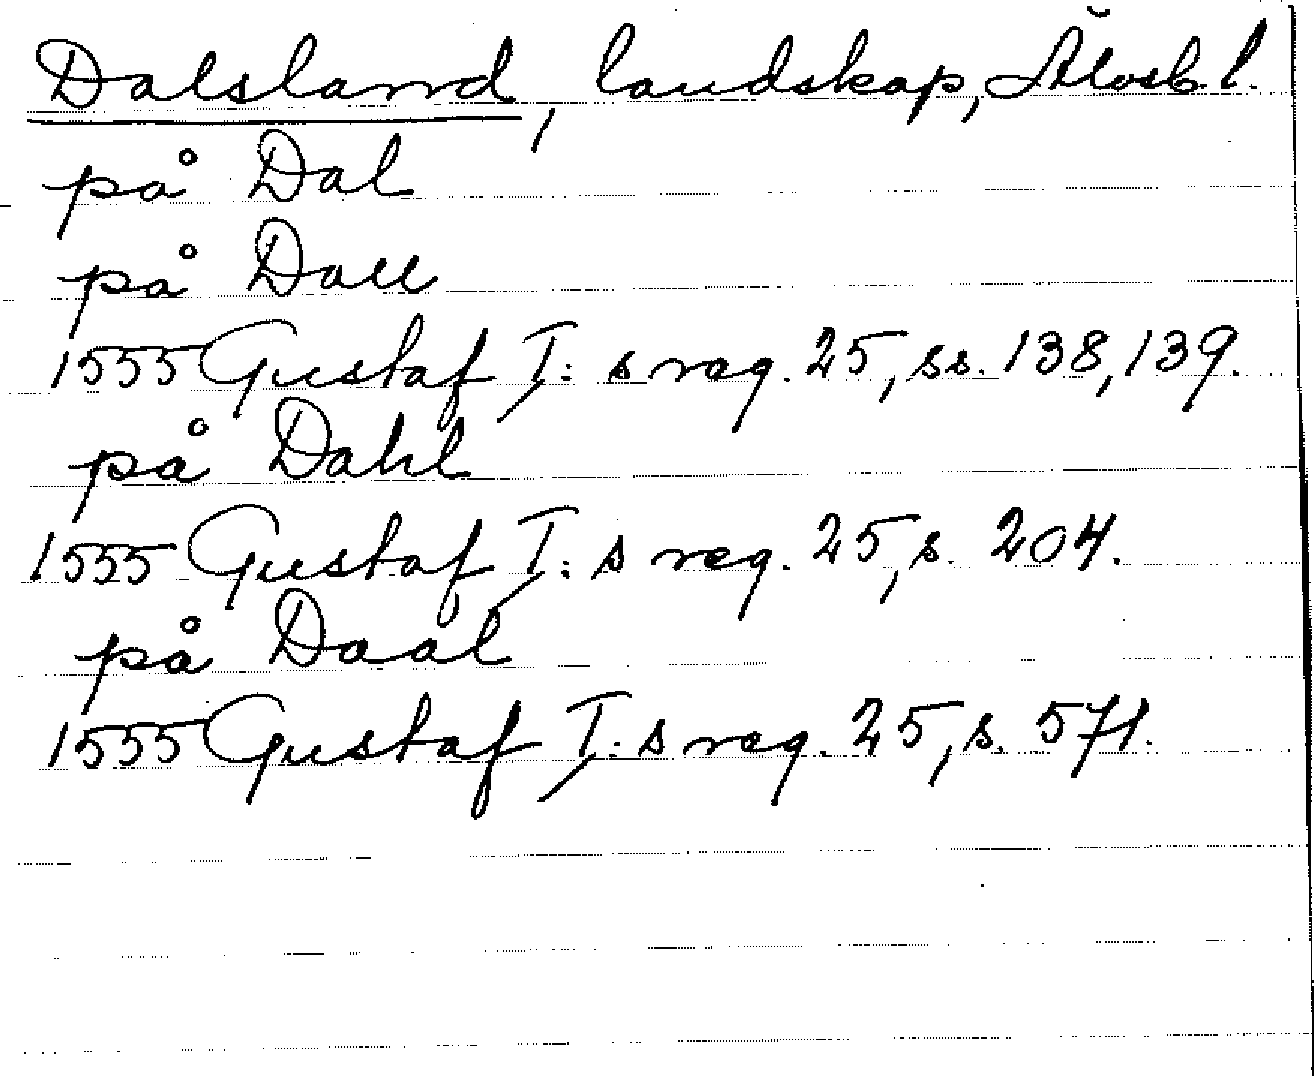 Dalsland, landskap, Älvsb. l.
på Dal
på Dall
1555 Gustaf I:s reg. 25, ss. 138, 139.
på Dahl
1555 Gustaf I:s reg. 25, s. 204.
på Daal
1555 Gustaf I:s reg. 25, s. 571.